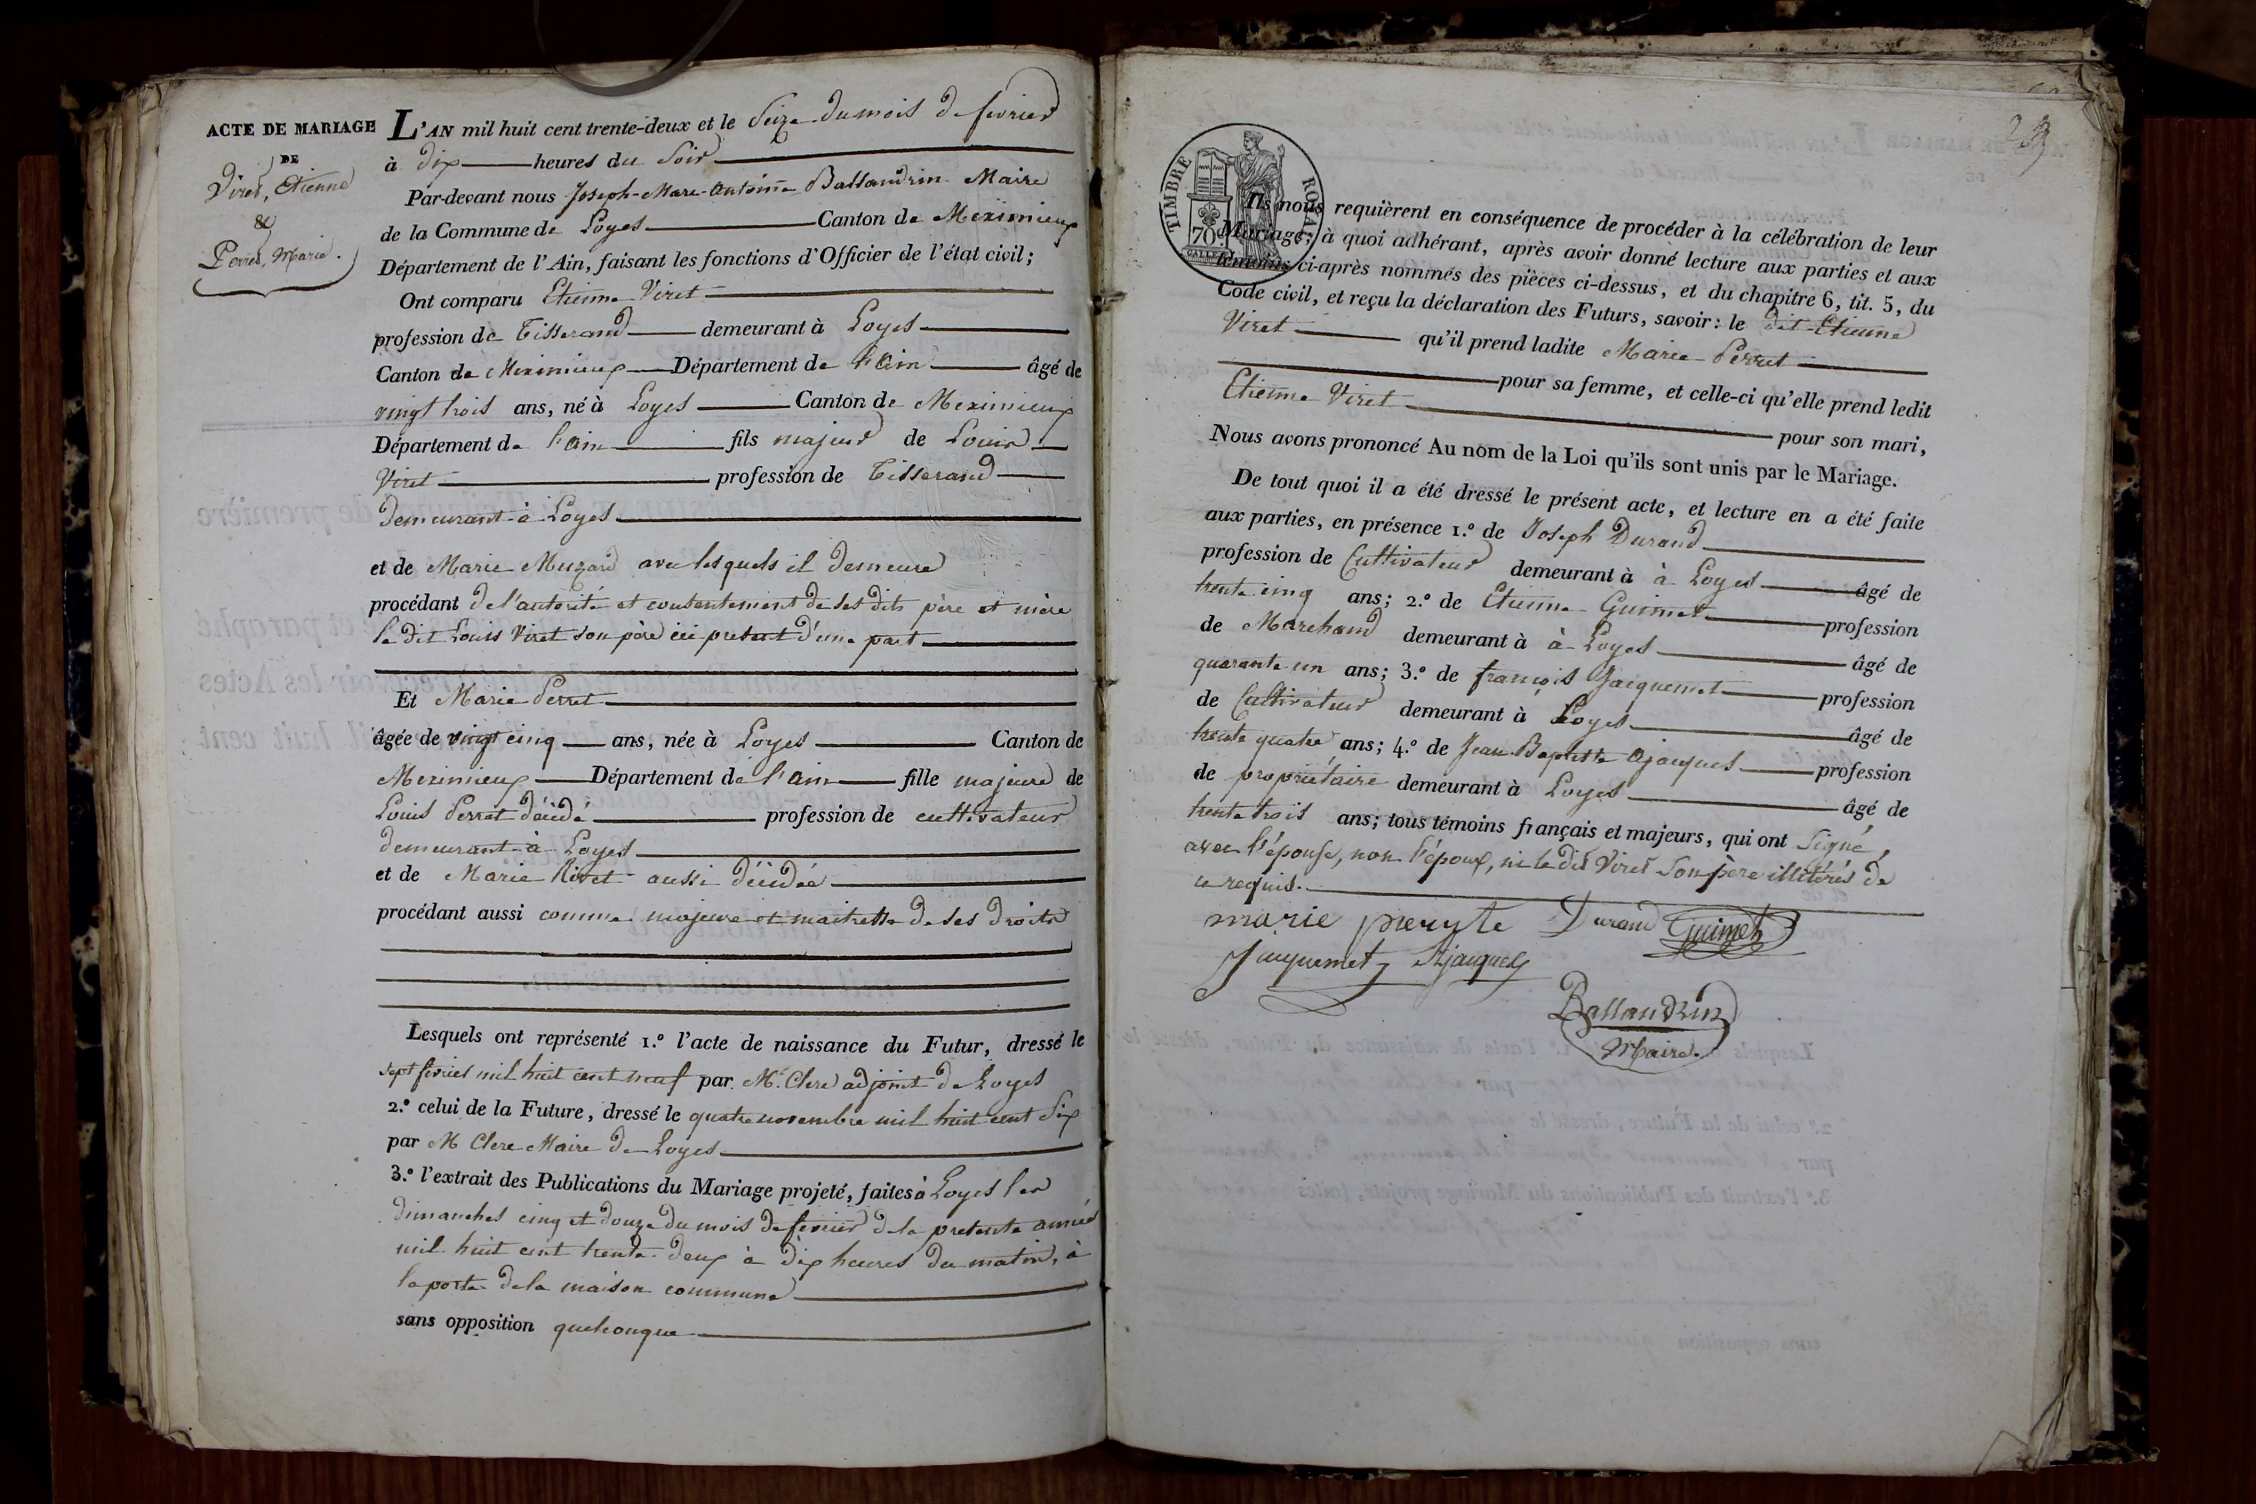 ACTE DE MARIAGE
DE
Viret, Etienne
&
Perret, Marie.
L'AN mil huit cent trente-deux et le Seize du mois de fevrier
à dix heures du Soir
Par-devant nous Joseph-Marc-Antoine Ballandrin Maire
de la Commune de Loyes Canton de Meximieux
Département de l'Ain, faisant les fonctions d'Officier de l'état civil;
Ont comparu Etienne Viret
profession de Tisserand demeurant à Loyes
Canton de Meximieux Département de l'ain âgé de
vingt trois ans, né à Loyes Canton de Meximieux
Département de l'ain fils majeur de Louis
Viret profession de Tisserand
demeurant à Loyes
et de Marie Muzard avec lesquels il demeure
procédant de l'autorité et consentement de ses dits père et mère
le dit Louis Viret son père ici présent d'une part
Et Marie Perret
âgée de vingt cinq ans, née à Loyes Canton de
Meximieux Département de l'ain fille majeure de
Louis Perret décédé profession de cultivateur
demeurant à Loyes
et de Marie Rivet aussi décédée
procédant aussi comme majeure et maitresse de ses droits
Lesquels ont représenté 1.º l'acte de naissance du Futur, dressé le
sept fevrier mil huit cent neuf par Mr. Clere adjoint de Loyes
2.º celui de la Future, dressé le quatre novembre mil huit cent Six
par M Clere Maire de Loyes
3.º l'extrait des Publications du Mariage projeté, faites à Loyes les
dimanches cinq et douze du mois de fevrier de la presente année
mil huit cent trente-deux à dix heures du matin, à
la porte de la maison commune
sans opposition quelconque
TIMBRE ROYAL
70
Ils nous requièrent en conséquence de procéder à la célébration de leur
Mariage; à quoi adhérant, après avoir donné lecture aux parties et aux
témoins ci-après nommés des pièces ci-dessus, et du chapitre 6, tit. 5, du
Code civil, et reçu la déclaration des Futurs, savoir: le dit Etienne
Viret qu'il prend ladite Marie Perret
pour sa femme, et celle-ci qu'elle prend ledit
Etienne Viret pour son mari,
Nous avons prononcé Au nom de la Loi qu'ils sont unis par le Mariage.
De tout quoi il a été dressé le présent acte, et lecture en a été faite
aux parties, en présence 1.º de Joseph Durand
profession de Cultivateur demeurant à à Loyes âgé de
trente cinq ans; 2.º de Etienne Guimet profession
de Marchand demeurant à à Loyes âgé de
quarante un ans; 3.º de françois Jacquemet profession
de Cultivateur demeurant à Loyes âgé de
trente quatre ans; 4.º de Jean Baptiste Ajacques profession
de propriétaire demeurant à Loyes âgé de
trente trois ans; tous témoins français et majeurs, qui ont Signé,
avec l'épouse, non l'époux, ni le dit Viret son père illitérés de
ce requis.
marie pereyte Durand Guimet
Jacquemet Ajacques
Ballandrin
Maire.